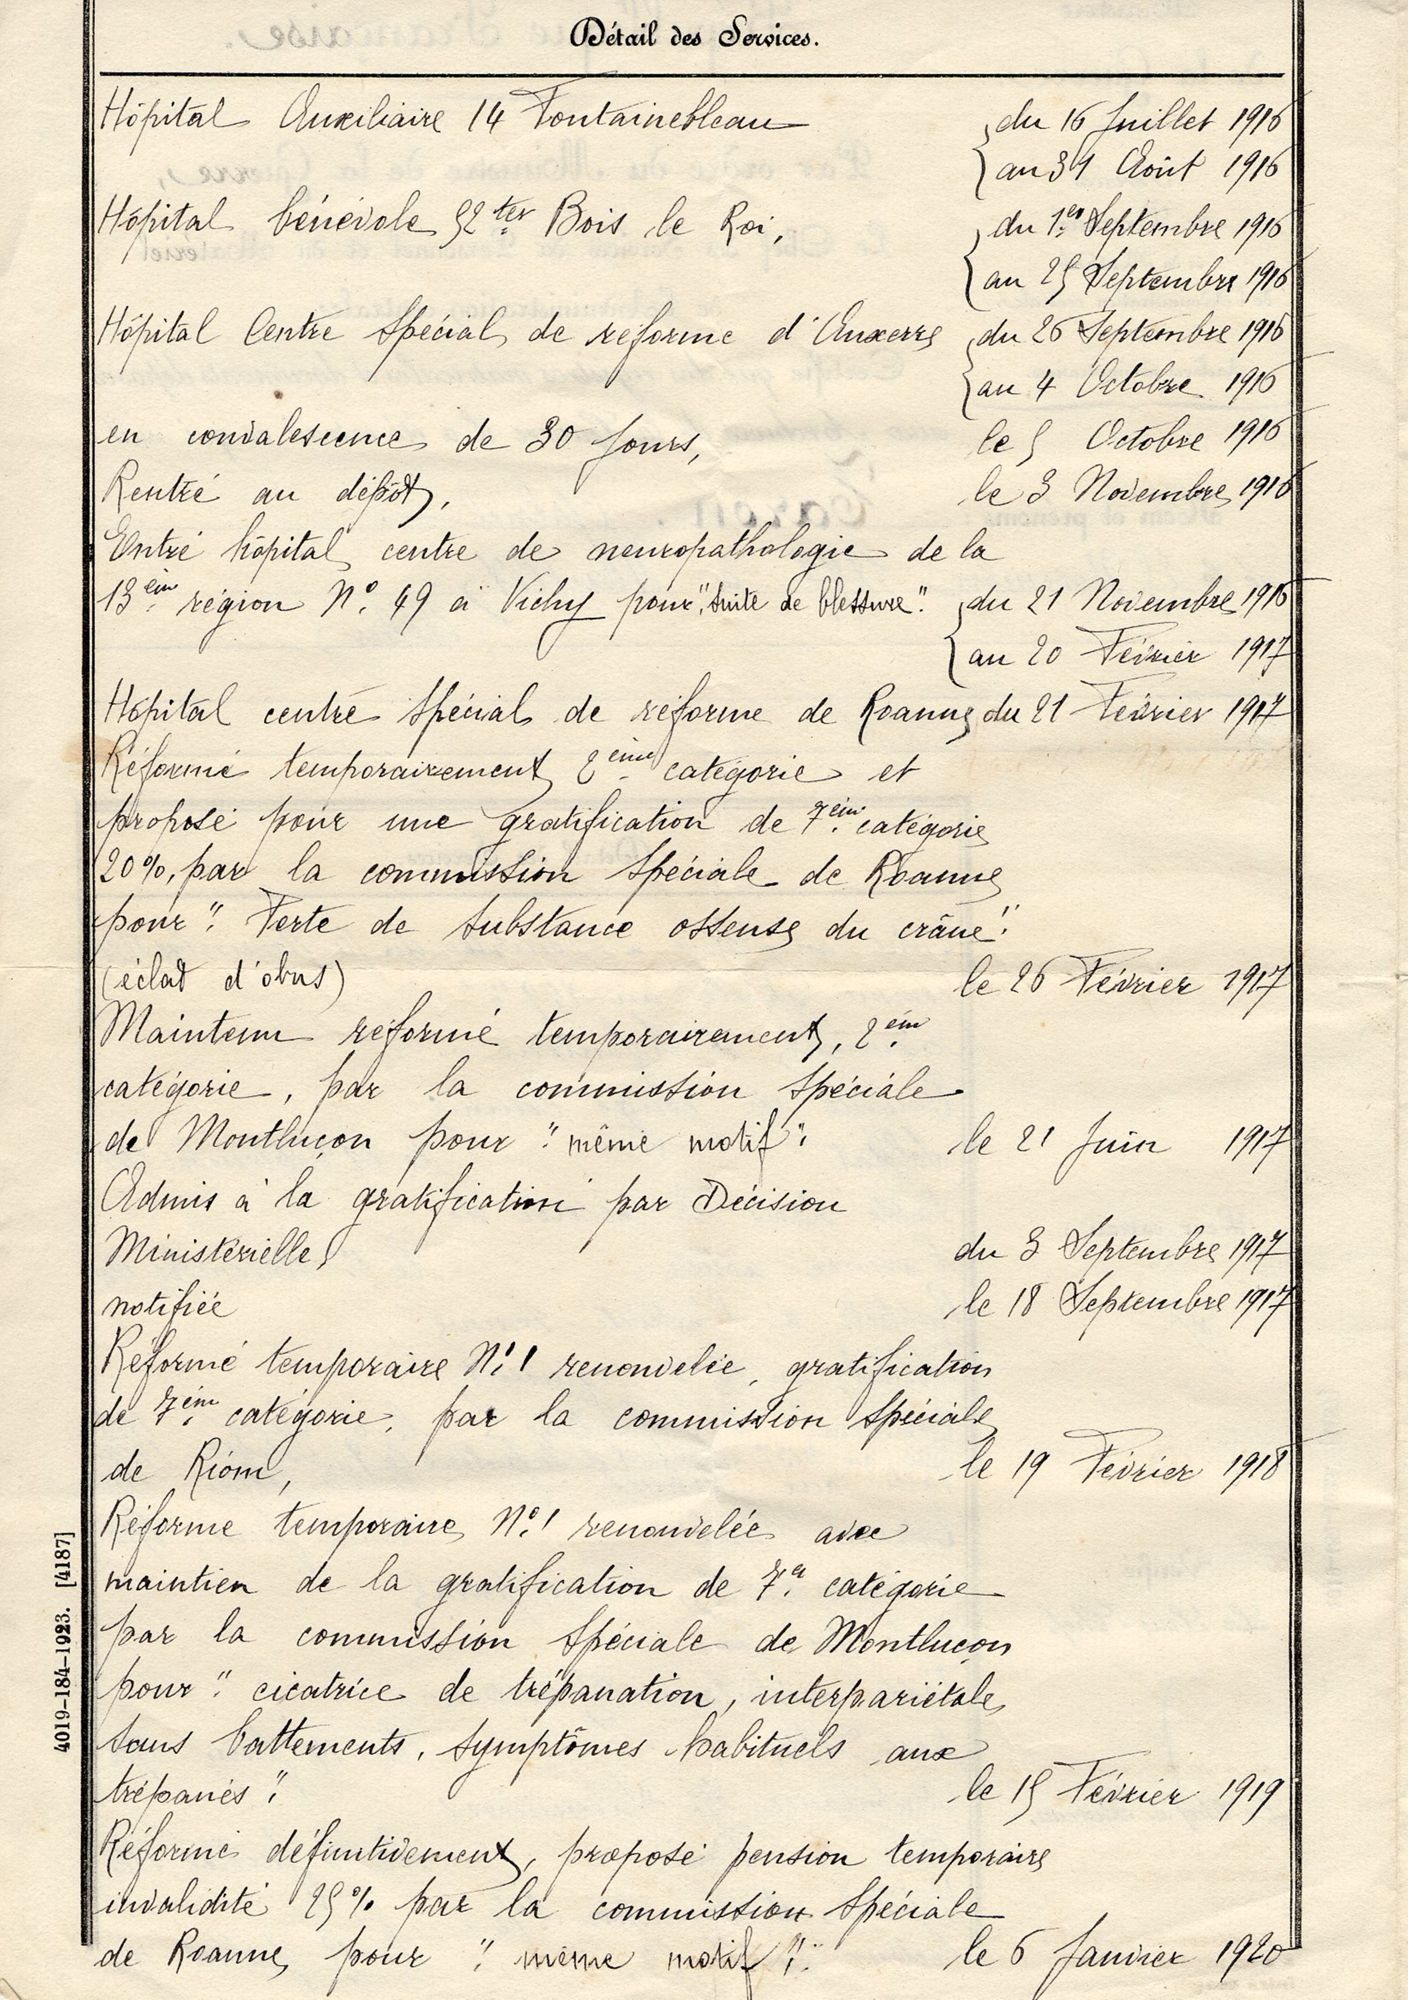 Détail des Services.
Hôpital Auxiliaire 14 Fontainebleau du 16 Juillet 1916
au 31 Août 1916
Hôpital bénévole 52 ter Bois le Roi, du 1er Septembre 1916
au 25 Septembre 1916
Hôpital Centre Spécial de reforme d'Auxerre du 26 Septembre 1916
au 4 Octobre 1916
en convalescence de 30 jours, le 5 Octobre 1916
Rentré au dépôt, le 3 Novembre 1916
Entré hôpital centre de neuropathologie de la
13ème région N° 49 à Vichy pour "suite de blessure". du 21 Novembre 1916
au 20 Février 1917
Hôpital centre spécial de réforme de Roanne du 21 Février 1917
Réformé temporairement 2ème catégorie et
proposé pour une gratification de 7ème catégorie
20%, par la commission spéciale de Roanne
pour "Perte de substance osseuse du crâne"
(éclat d'obus) le 26 Février 1917
Maintenu réformé temporairement, 2ém
catégorie, par la commission spéciale
de Montluçon pour "même motif" le 21 Juin 1917
Admis à la gratification par Décision
Ministérielle du 3 Septembre 1917
notifiée le 18 Septembre 1917
Réformé temporaire N° 1 renouvelée, gratification
de 7ém catégorie, par la commission spéciale
de Riom, le 19 Février 1918
Réforme temporaire N° 1 renouvelée avec
maintien de la gratification de 7e catégorie
par la commission spéciale de Montluçon
pour "cicatrice de trépanation, interpariétale
sans battements, symptômes habituels aux
trépanés" le 15 Février 1919
Réformé définitivement, proposé pension temporaire
invalidité 25% par la commission spéciale
de Roanne pour "même motif". le 6 Janvier 1920
4019-184-1923. [4187]